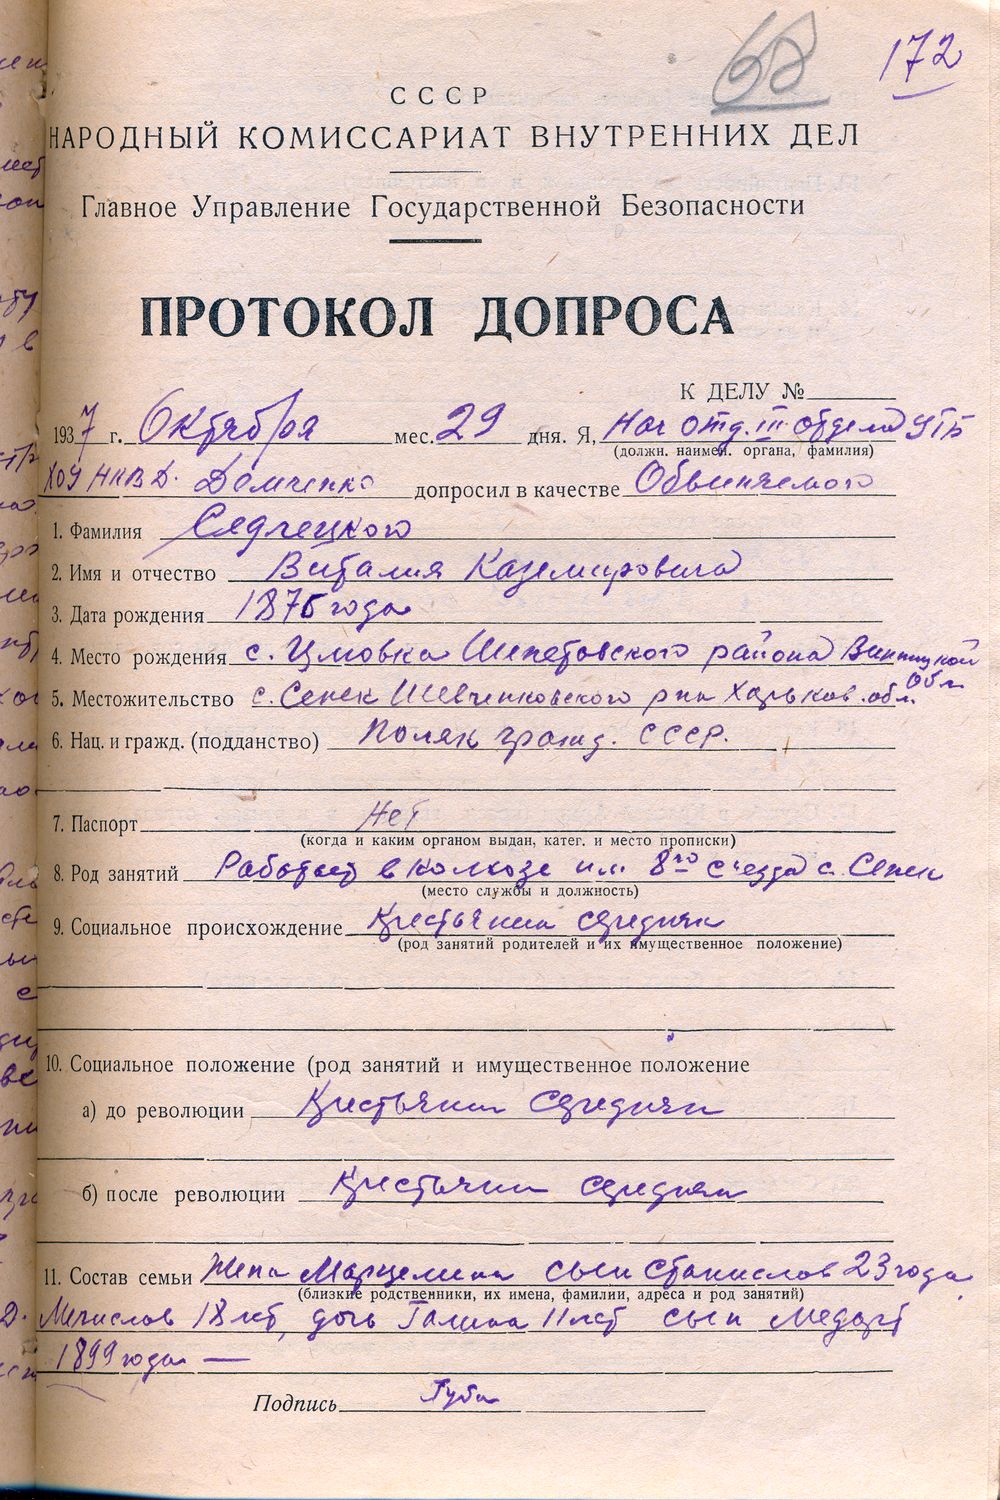 68
172
СССР
НАРОДНЫЙ КОМИССАРИАТ ВНУТРЕННИХ ДЕЛ
Главное Управление Государственной Безопасности
ПРОТОКОЛ ДОПРОСА
К ДЕЛУ №
1937 г. Октября мес. 29 дня. Я, Нач отд. III отдела УГБ
(должн. наимен. органа, фамилия)
ХОУ НКВД. Демченко допросил в качестве Обвиняемого
1. Фамилия Седлецкого
2. Имя и отчество Виталия Каземировича
3. Дата рождения 1876 года
4. Место рождения с. Цмовка Шепетовского района Винницкой
обл.
5. Местожительство с. Сенек Шевченковского р-на Харьков. обл.
6. Нац. и гражд. (подданство) Поляк гражд. СССР.
7. Паспорт Нет
(когда и каким органом выдан, катег. и место прописки)
8. Род занятий Работает в колхозе им. 8го съезда с. Сенек
(место службы и должность)
9. Социальное происхождение Крестьянин середняк
(род занятий родителей и их имущественное положение)
10. Социальное положение (род занятий и имущественное положение
а) до революции Крестьянин середняк
б) после революции Крестьянин середняк
11. Состав семьи Жена Марцелина сын Станислов 23 года
(близкие родственники, их имена, фамилии, адреса и род занятий)
Мечислов 18 лет, дочь Галина 11 лет сын
1899 года —
Подпись